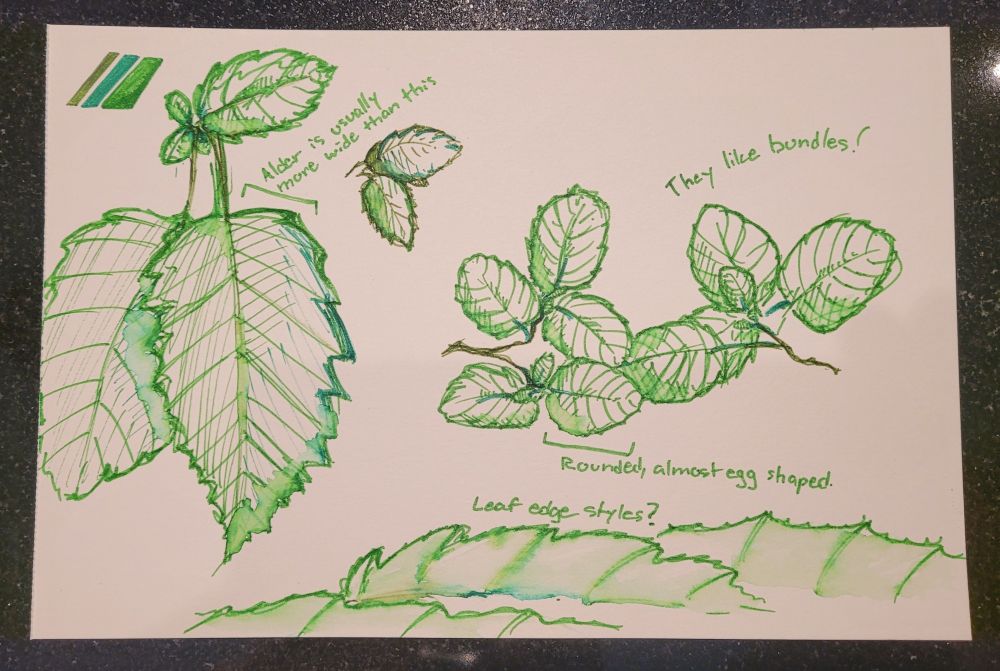 Alder is usually
more wide than this
They like bundles!
Rounded, almost egg shaped.
Leaf edge styles?